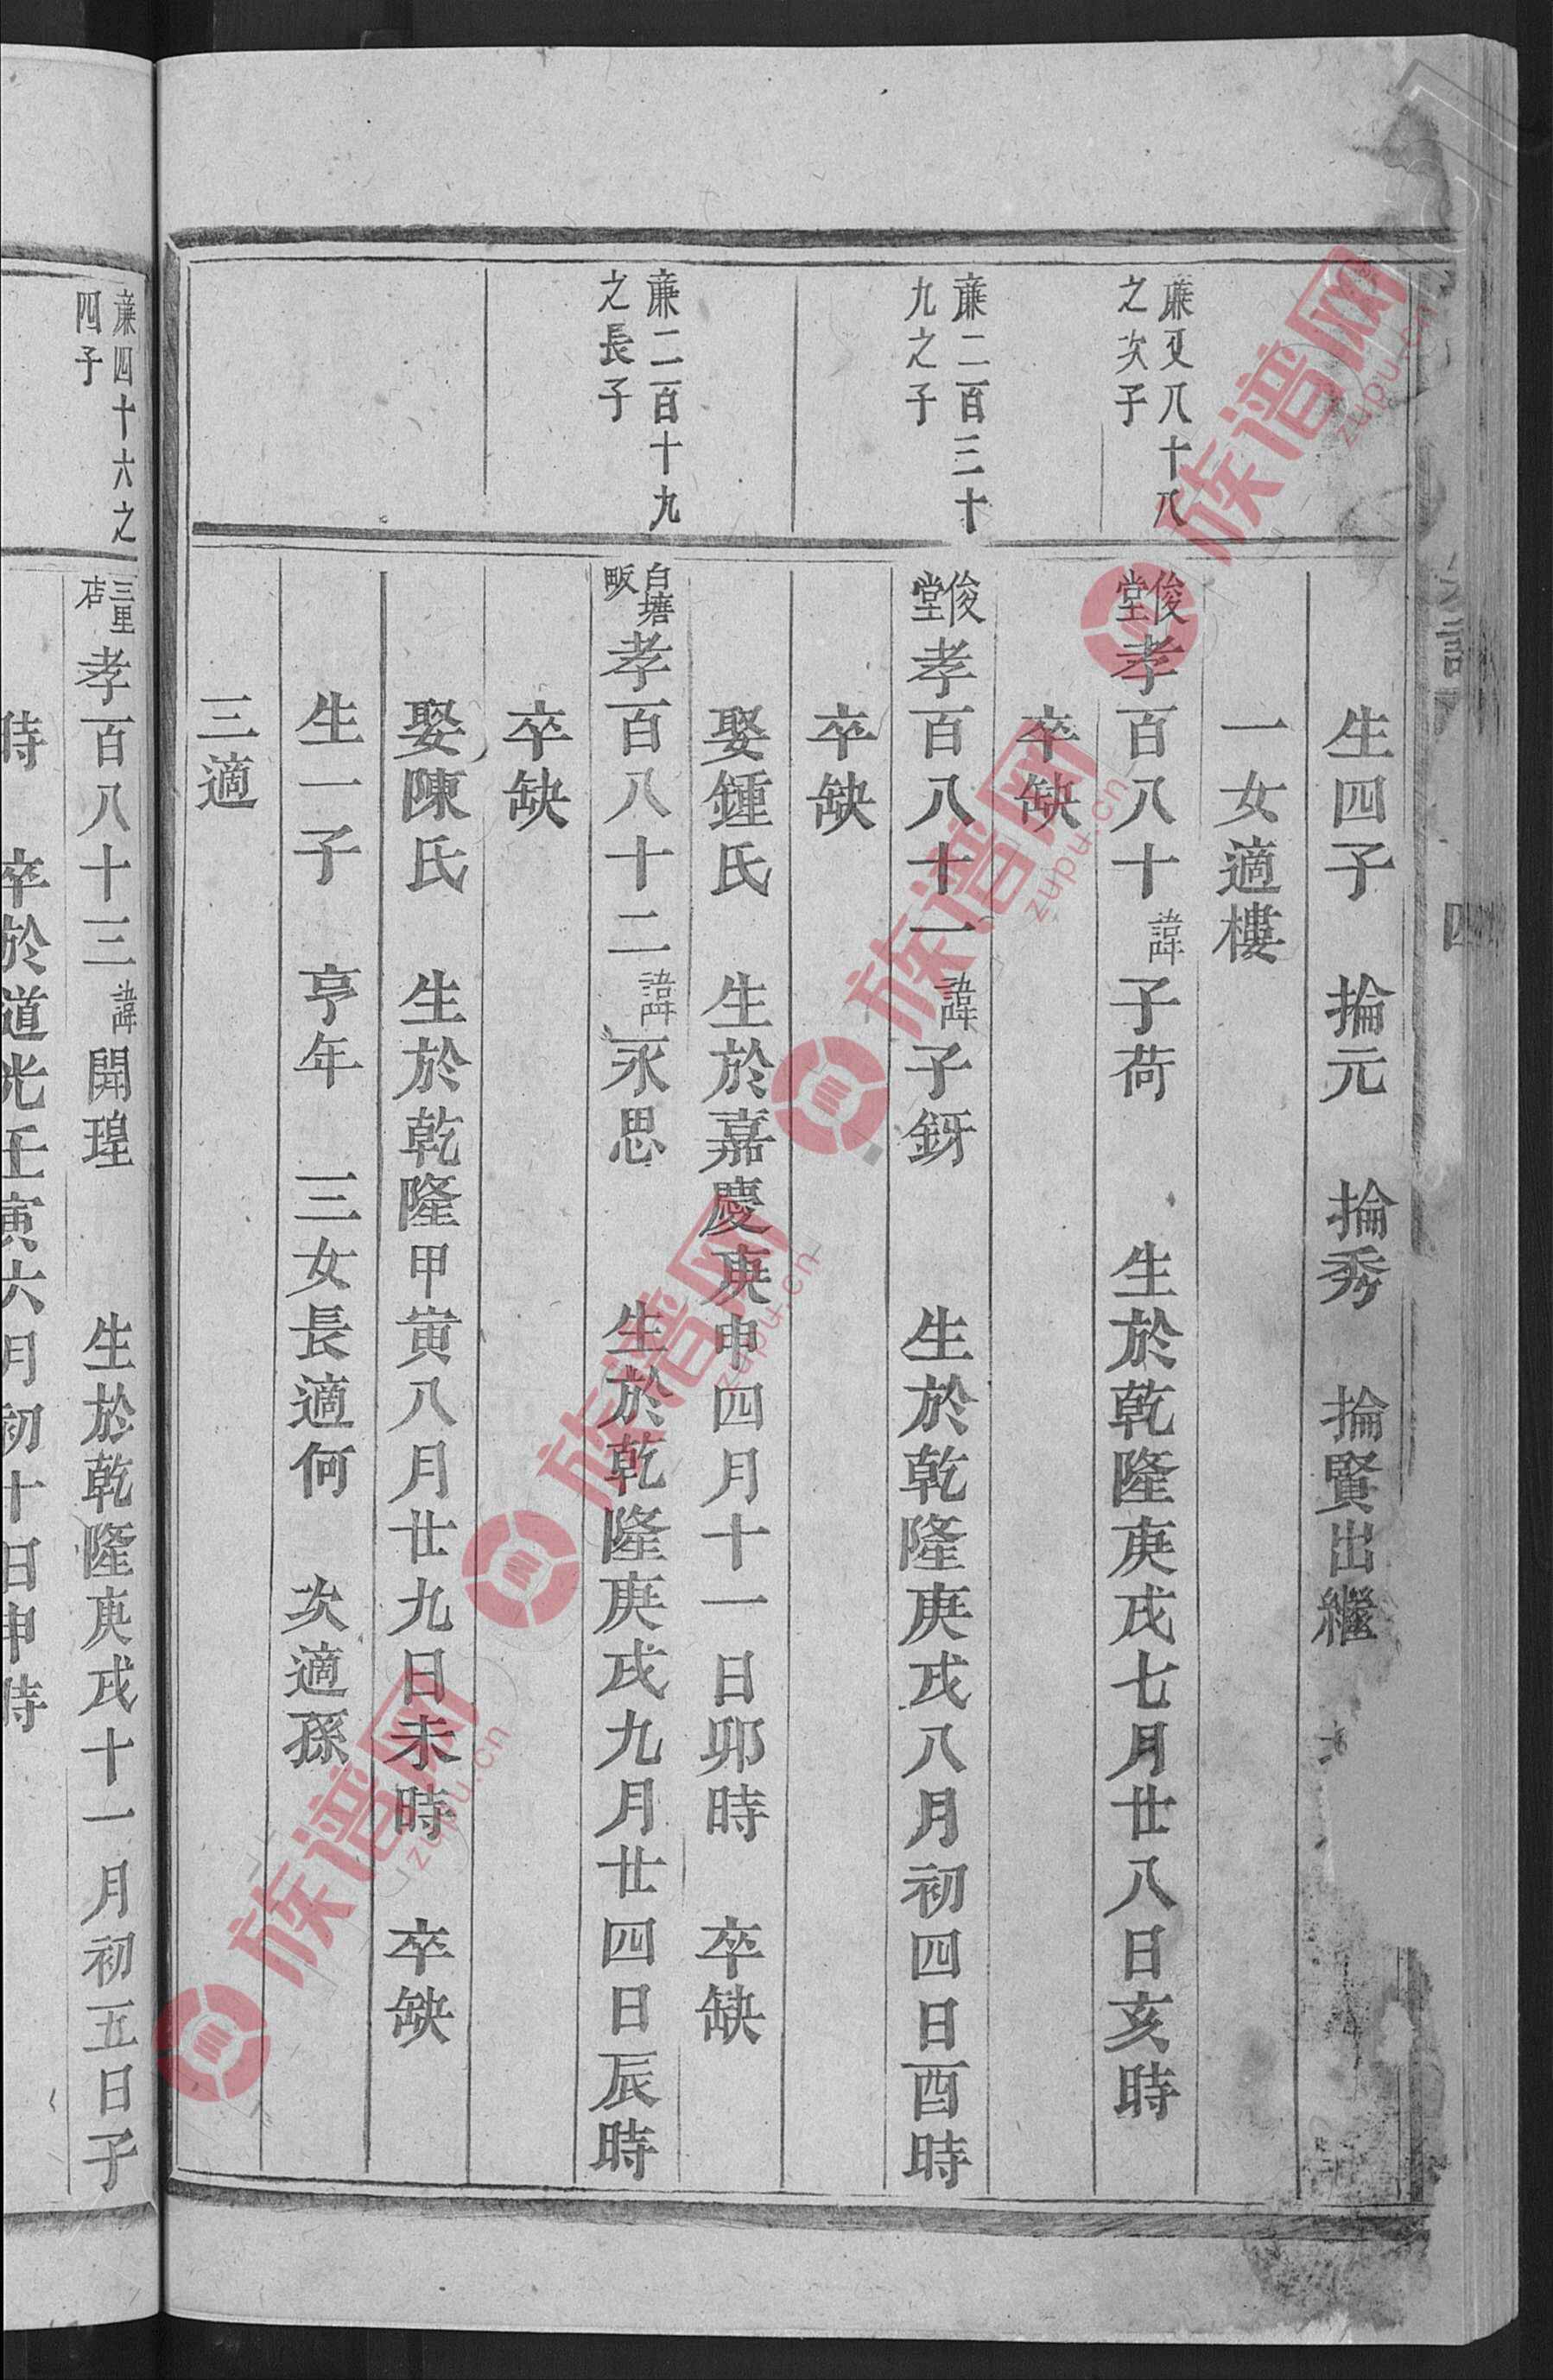 生四子　掄元　掄秀　掄賢出繼
一女適樓
廉又八十八
之次子
俊堂孝百八十諱子荷　生於乾隆庚戌七月廿八日亥時
卒缺
廉二百三十
九之子
俊堂孝百八十一諱子釾　生於乾隆庚戌八月初四日酉時
卒缺
娶鍾氏　生於嘉慶庚申四月十一日卯時　卒缺
廉二百十九
之長子
白塘畈孝百八十二諱永思　生於乾隆庚戌九月廿四日辰時
卒缺
娶陳氏　生於乾隆甲寅八月廿九日未時　卒缺
生一子　亨年　三女長適何　次適孫
三適
廉四十六之
四子
三里店孝百八十三諱開瑝　生於乾隆庚戌十一月初五日子
時　卒於道光壬寅六月初十日申時
四
族谱网
zupu.cn
族谱网
zupu.cn
族谱网
zupu.cn
族谱网
zupu.cn